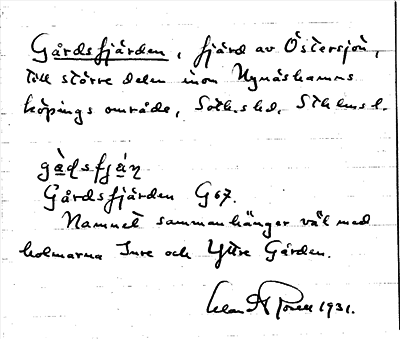 Gårdsfjärden, fjärd av Östersjön,
till större delen inom Nynäshamns
köpings område, Soth. hd, Sthlms l.
gårdsfjän
Gårdsfjärden G67.
Namnet sammanhänger väl med
holmarna Inre och Yttre Gården.
1931.